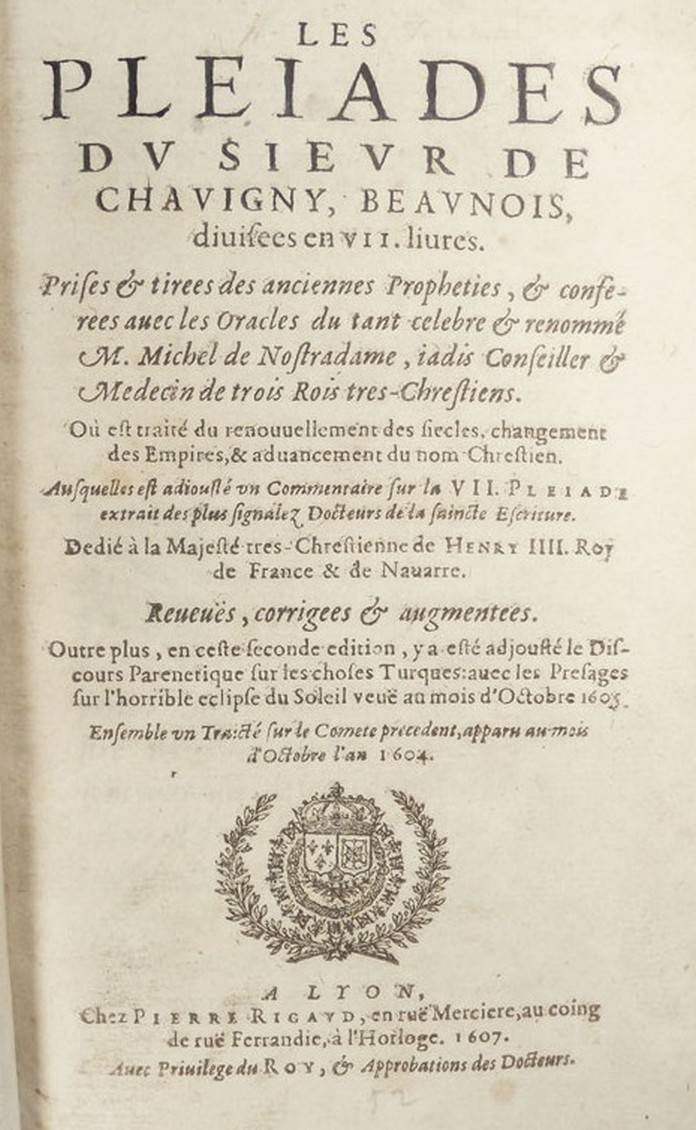 LES
PLEIADES
DV SIEVR DE
CHAVIGNY, BEAVNOIS,
diuiſees en VII. liures.
Priſes & tirees des anciennes Propheties, & confe-
rees auec les Oracles du tant celebre & renommé
M. Michel de Noſtradame, iadis Conſeiller &
Medecin de trois Rois tres-Chreſtiens.
Où eſt traité du renouuellement des ſiecles, changement
des Empires, & aduancement du nom Chreſtien.
Auſquelles eſt adiouſté vn Commentaire ſur la VII. PLEIADE
extrait des plus ſignalez Docteurs de la ſaincte Eſcriture.
Dedié à la Majeſté tres-Chreſtienne de HENRY IIII. Roy
de France & de Nauarre.
Reueuës, corrigees & augmentees.
Outre plus, en ceſte ſeconde edition, y a eſté adjouſté le Diſ-
cours Parenetique ſur les choſes Turques: auec les Preſages
ſur l'horrible eclipſe du Soleil veuë au mois d'Octobre 1605.
Enſemble vn Traicté ſur le Comete precedent, apparu au mois
d'Octobre l'an 1604.
A LYON,
Chez PIERRE RIGAVD, en ruë Merciere, au coing
de ruë Ferrandie, à l'Horloge. 1607.
Auec Priuilege du ROY, & Approbations des Docteurs.
52